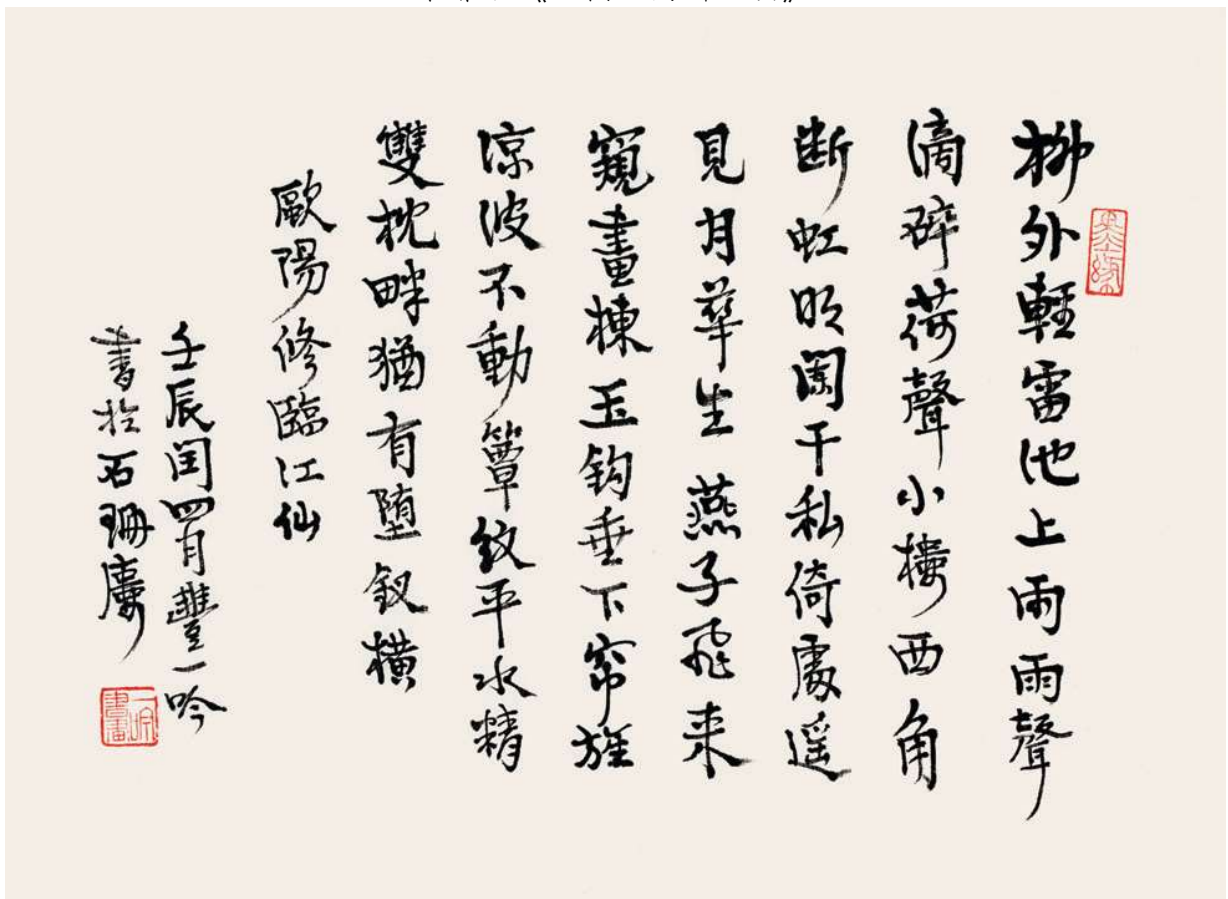 柳外輕雷池上雨雨聲
滴碎荷聲小樓西角
断虹明闌干私倚處遥
見月華生燕子飛来
窺畫棟玉鈎垂下帘旌
涼波不動簟紋平水精
雙枕畔猶有堕釵横
歐陽修臨江仙
壬辰閏四月豐一吟
書於石珊廔
墨緣
一吟書畫